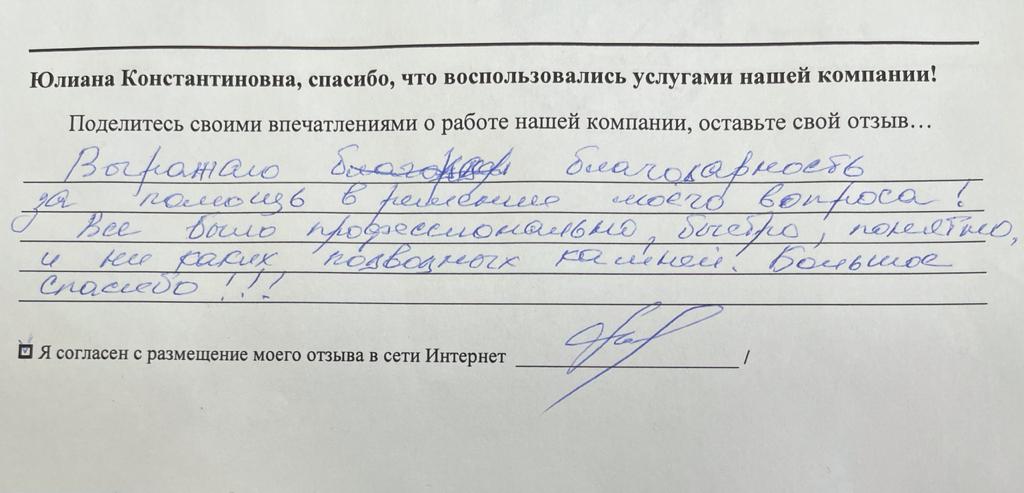 Юлиана Константиновна, спасибо, что воспользовались услугами нашей компании!
Поделитесь своими впечатлениями о работе нашей компании, оставьте свой отзыв…
Выражаю благодарность
за помощь в решение моего вопроса!
Все было профессионально, быстро, понятно,
и ни каких подводных камней. Большое
спасибо!!!
Я согласен с размещение моего отзыва в сети Интернет /